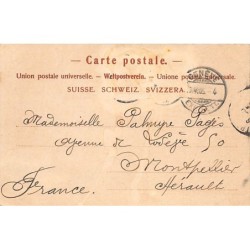 Carte postale.
Union postale universelle. – Weltpostverein. – Unione postale universale.
SUISSE. SCHWEIZ. SVIZZERA.
Mademoiselle Palmyre Pagès
Avenue de Lodève 50
Montpellier
Hérault
France.